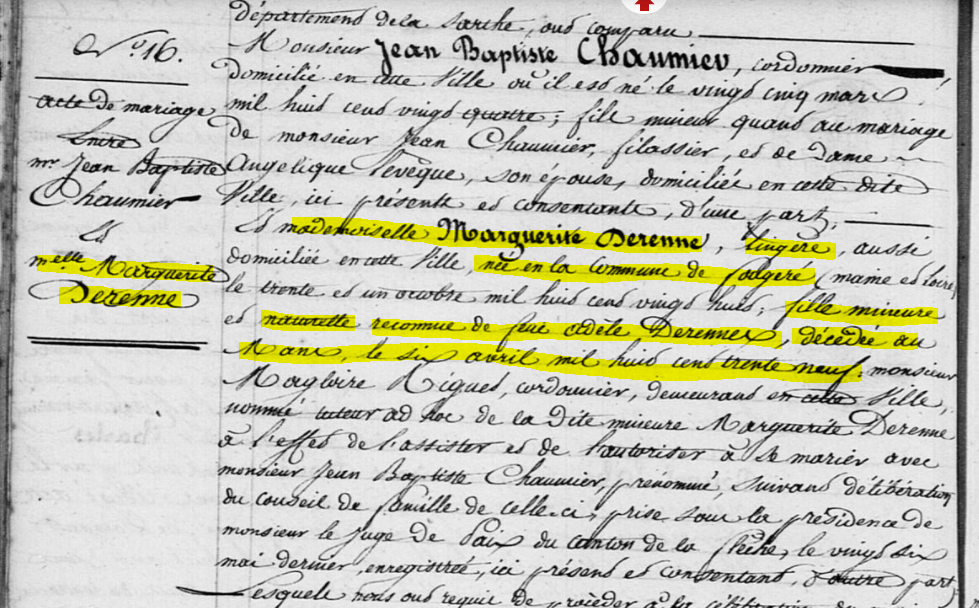 N.o 16.
acte de mariage
Entre
mr. Jean Baptiste
Chaumier
Et
melle Marguerite
Derenne
Département de la Sarthe, ont comparu
Monsieur Jean Baptiste Chaumier, cordonnier
domicilié en cette Ville où il est né le vingt cinq mars
mil huit cent vingt quatre ; fils mineur quant au mariage
de monsieur Jean Chaumier, filassier, et de dame
Angelique Levêque, son épouse, domiciliée en cette dite
Ville, ici présente et consentante, d'une part,
Et mademoiselle Marguerite Derenne, lingère, aussi
domiciliée en cette Ville, née en la Commune de (maine et Loire)
le trente et un octobre mil huit cent vingt huit, fille mineure
et naturelle reconnue de feue adèle Derennes, décédée au
Mans, le six avril mil huit cent trente neuf ; monsieur
Magloire Rigues, cordonnier, demeurant en cette Ville,
nommé tuteur ad hoc de la dite mineure Marguerite Derenne
à l'effet de l'assister et de l'autoriser à se marier avec
monsieur Jean Baptiste Chaumier, prenommé, suivant délibération
du Conseil de famille de celle ci, prise sous la présidence de
monsieur le Juge de Paix du canton de la flèche, le vingt six
mai dernier, enregistrée, ici présent et consentant, d'autre part
Lesquels nous ont requit de procéder à la célébration du